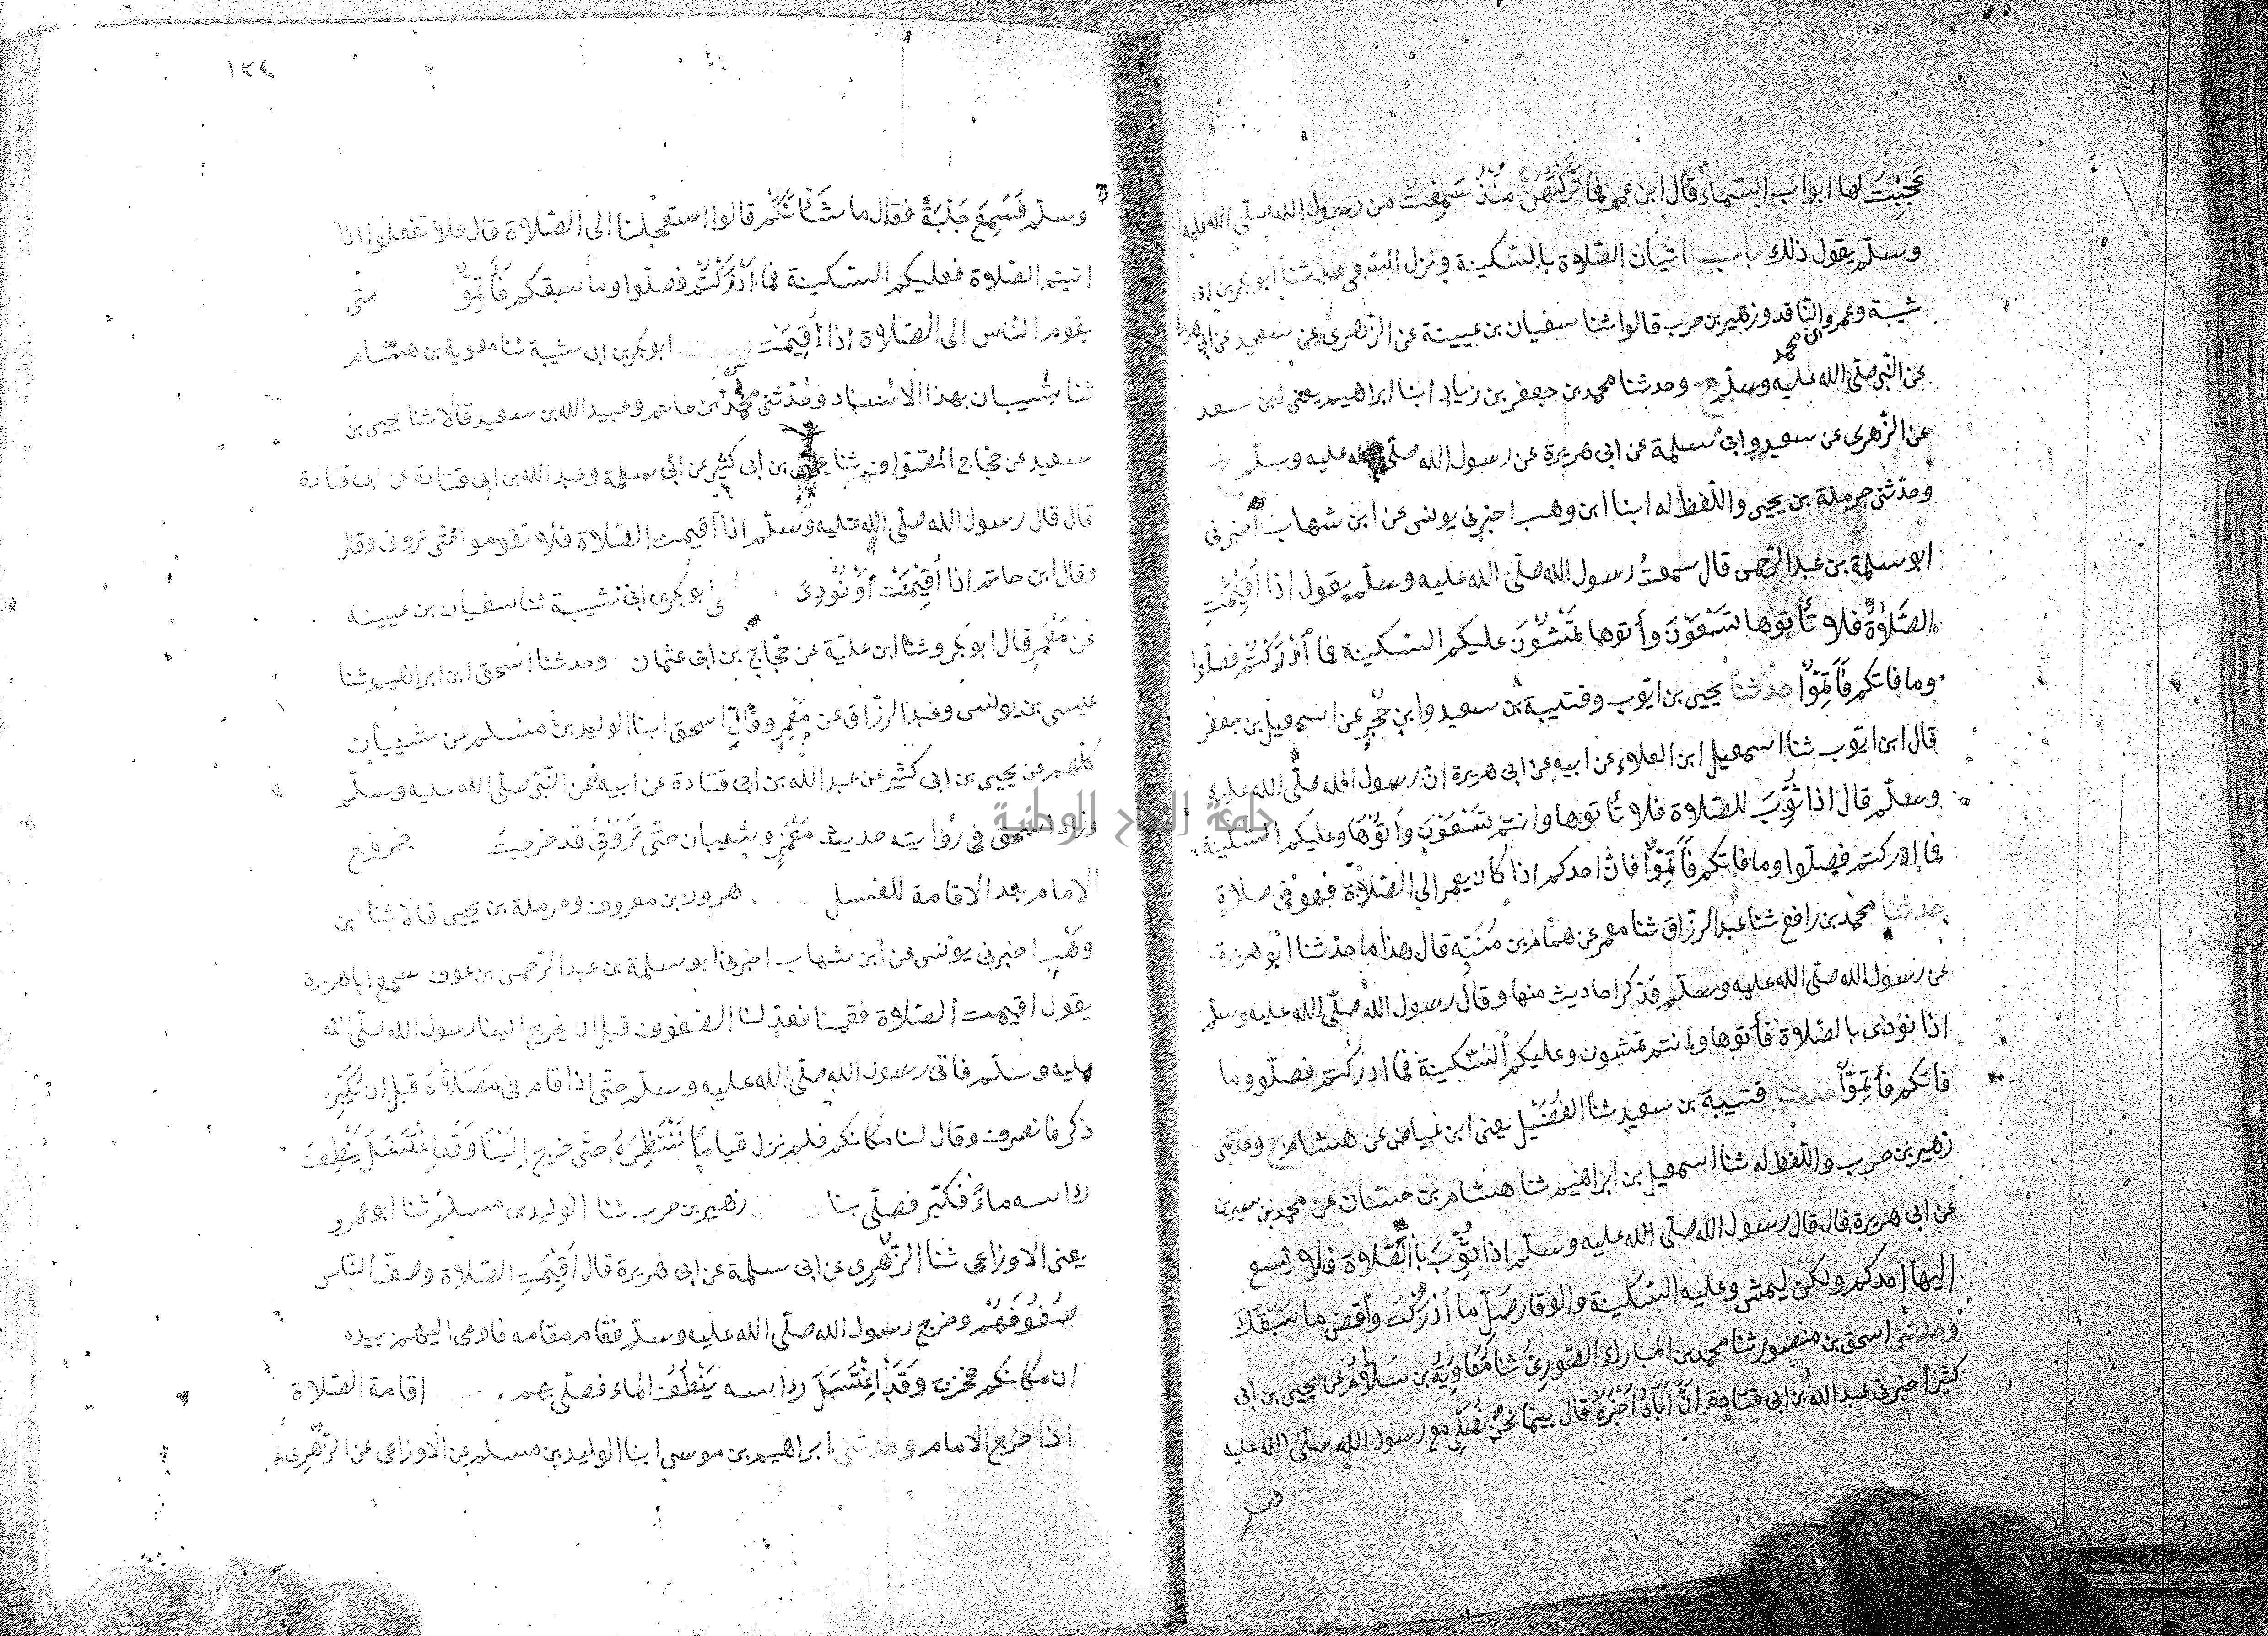 عَجِبْتُ لها ابواب السّماء قال ابن عمر فما تَرَكْتُهُنَّ مُنْذُ سَمِعْتُ من رسول الله صلّى الله عليه
وسلّم يقول ذلك باب اتيان الصّلاة بالسّكينة ونزل السّعي حدثنا ابو بكر بن ابى
شيبة وعمرو النّاقد وزهير بن حرب قالوا ثنا سفيان بن عيينة عن الزّهرى عن سعيد عن ابى هريرة
عن النّبى صلّى الله عليه وسلّم ح وحدثنا محمد بن جعفر بن زياد ابنا ابراهيم يعنى ابن سعد
عن الزّهرى عن سعيد وابى سلمة عن ابى هريرة عن رسول الله صلّى الله عليه وسلّم ح
وحدّثنى حرملة بن يحيى واللّفظ له ابنا ابن وهب اخبرنى يونس عن ابن شهاب اخبرنى
ابو سلمة بن عبد الرّحمن قال سمعتُ رسول الله صلّى الله عليه وسلّم يقول اذا اُقِيْمَتِ
الصَّلاةُ فلا تَأتوها تَسْعَوْنَ وأتوها تَمْشُوْنَ عليكم السّكينة فما اَدْرَكْتُمْ فصلّوا
وما فاتكم فَأَتِمُّوْا حدثنا يحيى بن ايّوب وقتيبة بن سعيد وابن حُجْرٍ عن اسمعيل بن جعفر
قال ابن ايّوب ثنا اسمعيل ابن العلاء عن ابيه عن ابى هريرة انّ رسول الله صلّى الله عليه
وسلّم قال اذا ثُوِّبَ للصّلاة فلا تَأتوها وانتم تَسْعَوْنَ وأتُوْهَا وعليكم السّكينة
فما ادركتم فصلّوا وما فاتكم فَأَتِمُّوْا فانّ احدكم اذا كان يعمد الى الصّلاة فهو فى صلاةٍ
حدثنا محمد بن رافع ثنا عبد الرزّاق ثنا معمر عن همّام بن مُنَبّه قال هذا ما حدثنا ابو هريرة
عن رسول الله صلّى الله عليه وسلّم فذكر احاديث منها وقال رسول الله صلّى الله عليه وسلّم
اذا نودى بالصّلاة فأتوها وانتم تمشون وعليكم السّكينة فما ادركتم فصلّوو ما
فاتكم فأتمّوْا حدثنا قتيبة بن سعيد ثنا الفُضَيْل يعنى ابن عياض عن هشام ح وحدّثنى
زهير بن حرب واللّفظ له ثنا اسمعيل بن ابراهيم ثنا هشام بن حسّان عن محمد بن سيرين
عن ابى هريرة قال قال رسول الله صلّى الله عليه وسلّم اذا ثُوِّبَ بالصّلاة فلا يَسع
اليها احدكم ولكن ليمش وعليه السّكينة والوقار صَلِّ ما اَدْرَكْتَ واقْضِ ما سَبَقَكَ
وحدثنى اسحق بن منصور ثنا محمد بن المبارك الصّورىّ ثنا مُعَاوِيَةُ بن سَلاَّم عن يحيى بن ابى
كثير اخبرنى عبد الله بن ابى قتادة اَنَّ اَبَاهُ اَخْبَرَهُ قال بينما نحن نُصَلِّى مع رسول الله صلّى الله عليه
وسلم
١٢٤
وسلّم فَسَمِعَ جَلَبَةً فقال ما شَأنُكُم قالوا استعجلنا الى الصّلاة قال فلا تفعلوا اذا
اتيتم الصّلاة فعليكم السّكينة فما اَدْرَكْتُمْ فصلّوا وما سبقكم فَأَتِمُّوْا متى
يقوم النّاس الى الصّلاة اذا اُقِيْمَتْ ابو بكر بن ابى شيبة ثنا معوية بن هشام
ثنا شيبان بهذا الاسناد وحدّثنى محمّد بن حاتم وعبيد الله بن سعيد قالا ثنا يحيى بن
سعيد عن حجّاج الصّوّاف ثنا يحيى بن ابى كثير عن ابى سلمة وعبد الله بن ابى قتادة عن ابى قتادة
قال قال رسول الله صلّى الله عليه وسلّم اذا اُقيمت الصّلاة فلا تقوموا حتّى ترونى وقال
وقال ابن حاتم اذا اُقِيْمَتْ اَوْ نُوْدِىَ ابو بكر بن ابى شيبة ثنا سفيان بن عيينة
عن مَعْمَرٍ قال ابو بكر وثنا ابن عليّة عن حجّاج بن ابى عثمان وحدثنا اسحق ابن ابراهيم ثنا
عيسى بن يونس وعبد الرزّاق عن مَعْمَرٍ وقال اسحق ابنا الوليد بن مسلم عن شيبان
كلّهم عن يحيى بن ابى كثير عن عبد الله بن ابى قتادة عن ابيه عن النّبى صلّى الله عليه وسلّم
وزاد اسحق فى رِوَايته حديث مَعْمَرٍ وشيبان حتّى تَرَوْنِىْ قد خرجتُ خروج
الامام بعد الاقامة للغسل هرون بن معروف وحرملة بن يحيى قالا ثنا ابن
وَهْب اخبرنى يونس عن ابن شهاب اخبرنى ابو سلمة بن عبد الرّحمن بن عوف سمع ابا هريرة
يقول اقيمت الصّلاة فقمنا فعدّلنا الصّفوف قبل ان يخرج الينا رسول الله صلّى الله
عليه وسلّم فاتى رسول الله صلّى الله عليه وسلّم حتّى اذا قام فى مُصَلاَّهُ قبل ان يُكَبِّرَ
ذكر فانصرف وقال لنا مكانكم فلم نزل قياماً نَنْتَظِرَهُ حتّى خرج اِلَيْنَا وَقَدِ اغْتَسَلَ يَنْطِفُ
راسه ماءً فكبّر فصلّى بنا زهير بن حرب ثنا الوليد بن مسلم ثنا ابو عمرو
يعنى الاوزاعى ثنا الزّهْرِى عن ابى سلمة عن ابى هريرة قال اُقِيْمَتِ الصّلاة وصفّ النّاس
صُفُوْفَهُمْ وخرج رسول الله صلّى الله عليه وسلّم فقام مقامه فاومى اليهم بيده
ان مكانكم فخرج وَقَدِ اغْتَسَلَ راسه يَنْطُفُ الماء فصلّى بهم اقامة الصّلاة
اذا خرج الامام وحدثنى ابراهيم بن موسى ابنا الوليد بن مسلم عن الاوزاعى عن الزّهْرِى
جامعة النجاح الوطنية